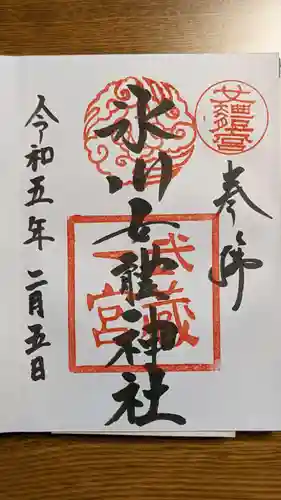 女體宮
奉拝
武蔵
一宮
氷川女體神社
令和五年 二月五日